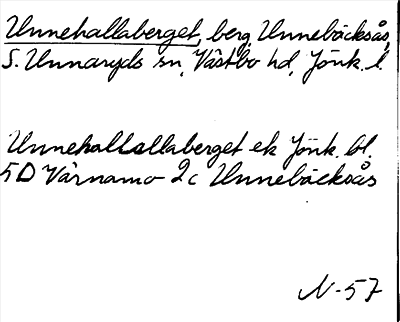 Unnehallaberget, berg, Unnebäcksås,
S. Unnaryds sn, Västbo hd, Jönk. l.
Unnehallsallaberget ek Jönk. bl.
5D Värnamo 2c Unnebäcksås
N-57